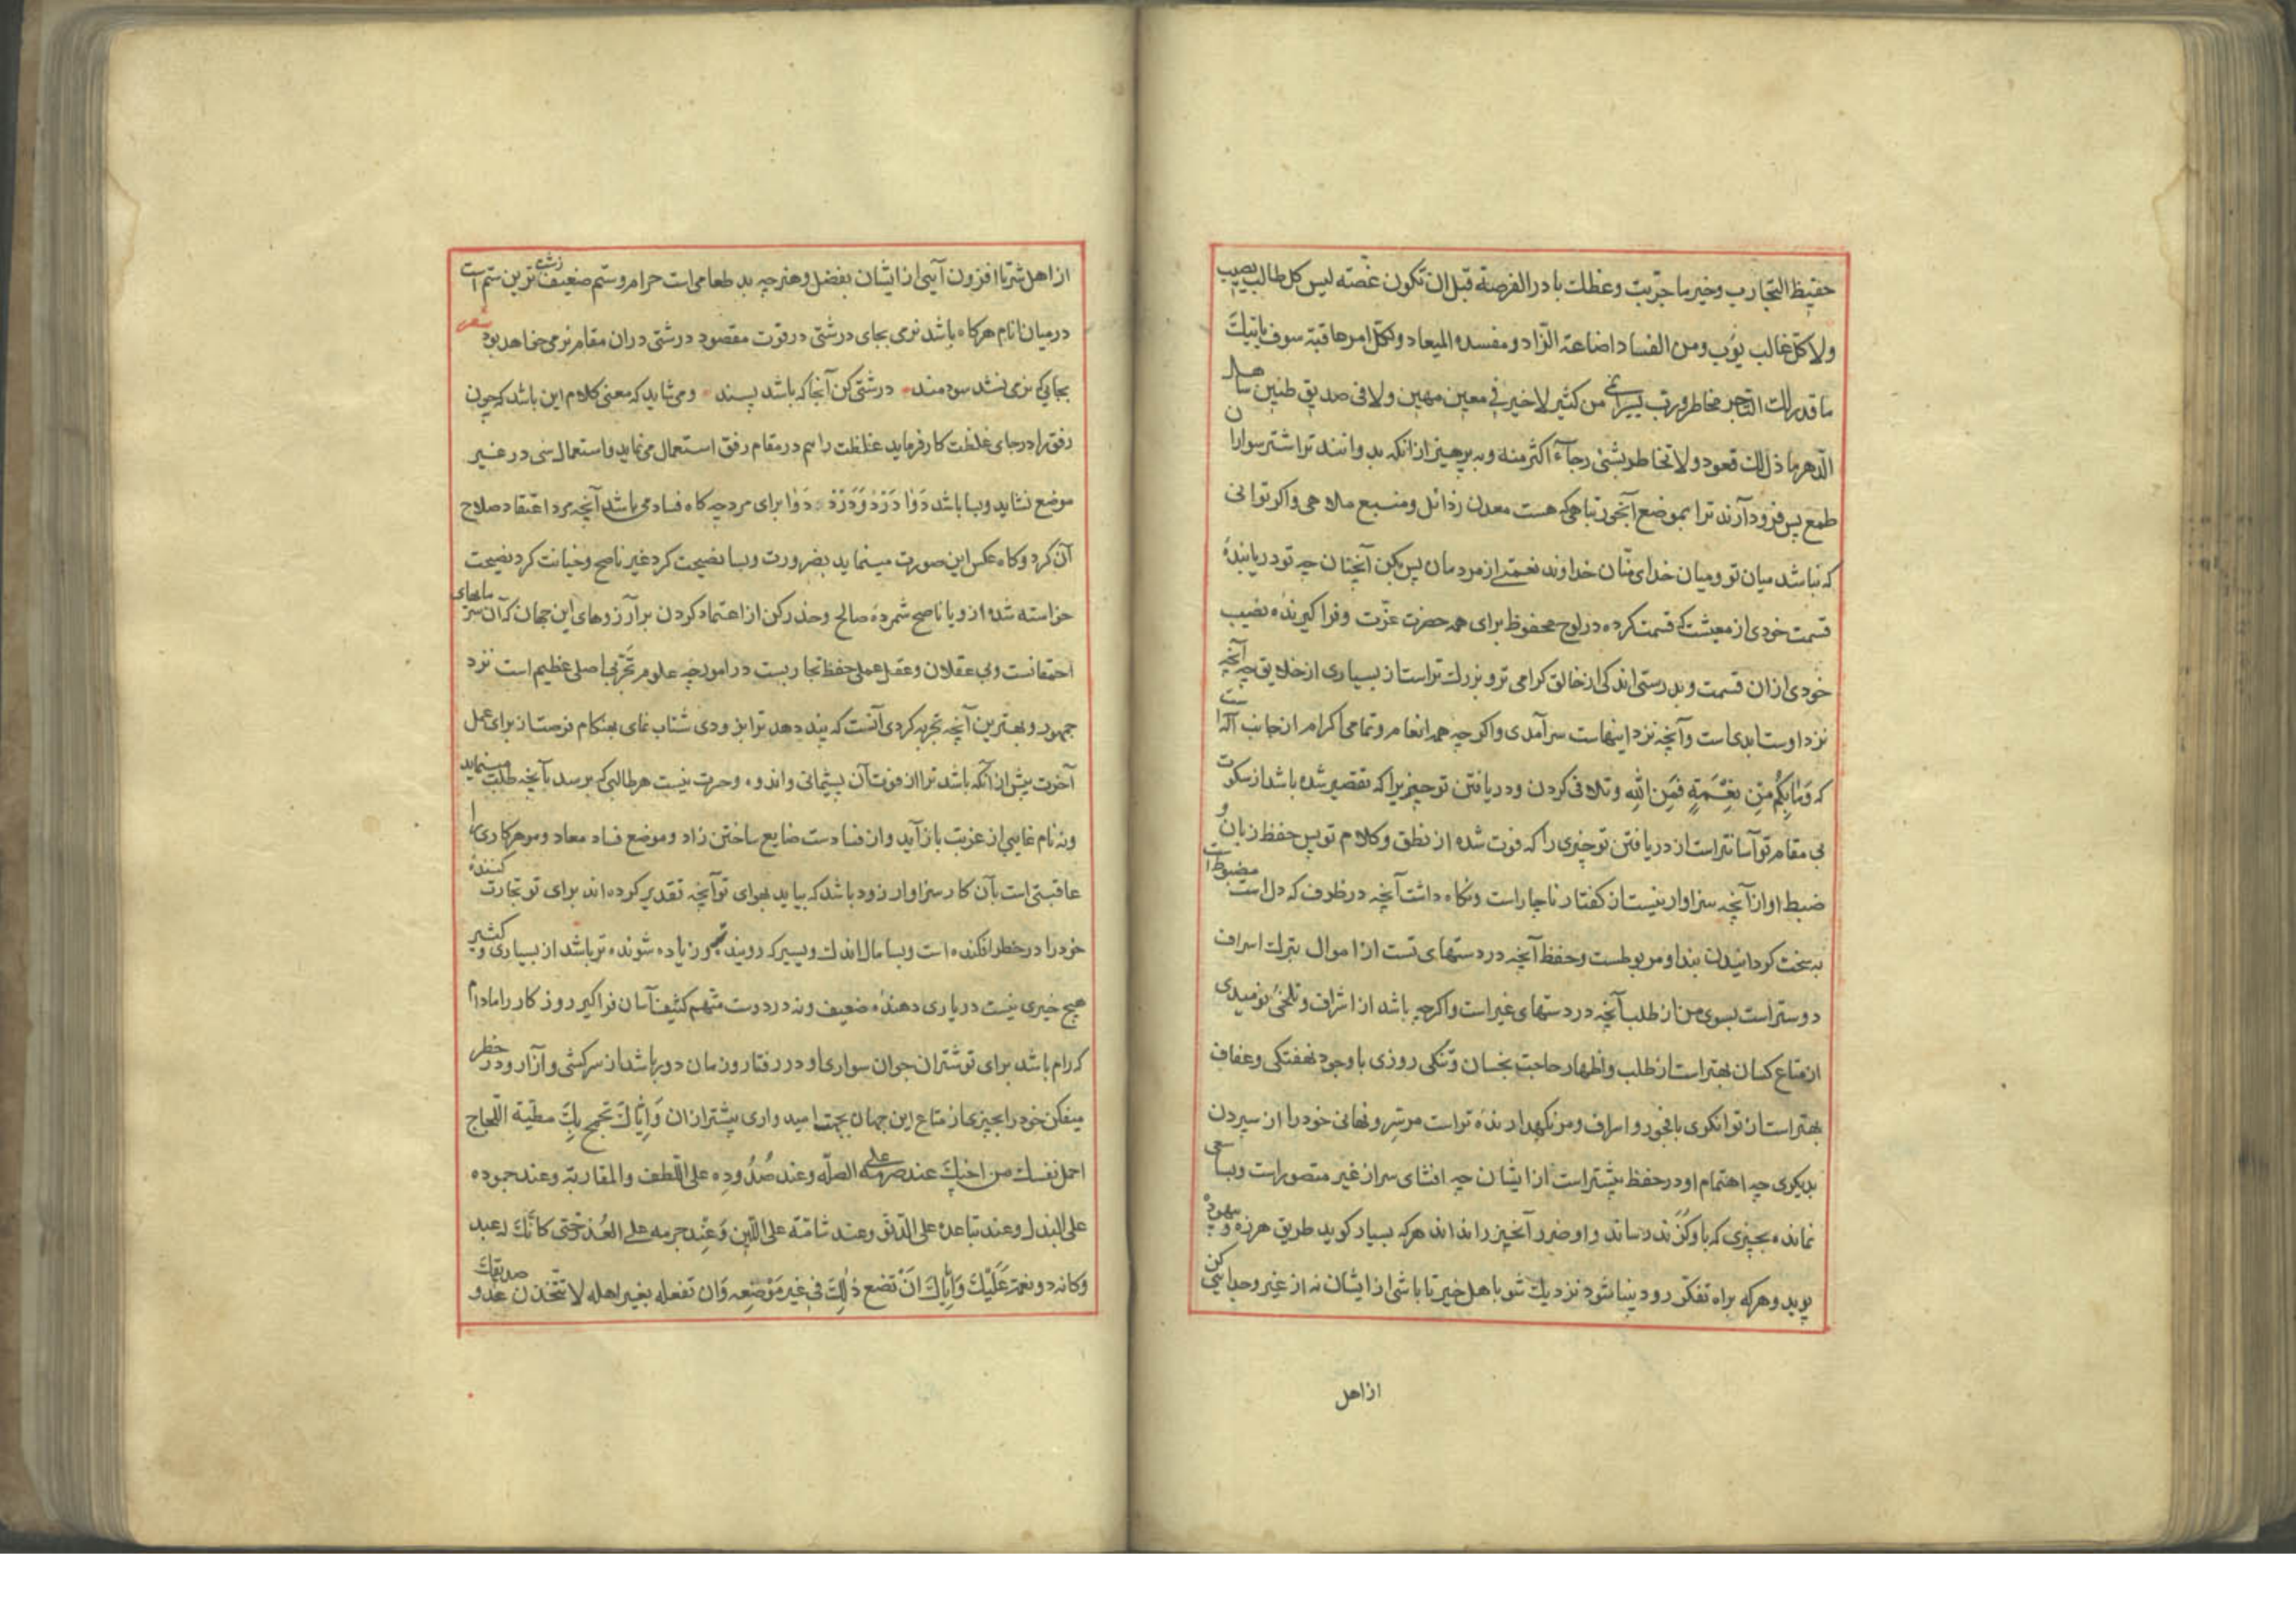 حفیظ التجارب وخیر ما جربت وعظك بادر الفرصة قبل ان تکون غصّه لیس کل طالب یصیب
ولا کلّ غالب یؤب ومن الفساد اضاعة الزّاد ومفسده المیعاد ولکلّ امر عاقبة سوف یاتیك
ما قدر لك التاجر مخاطر ورب یسیر انمی من کثیر لا خیر فی معین مهین ولا فی صدیق ظنین ساهل
الدّهر ما ذل لك قعود ولا تخاطر بشئ رجآء اکثر منه وبپرهیز از آنکه بدوانند ترا اشترسواران
طمع پس فرود آرند ترا بموضع آبخور تباهی که هست معدن رذائل ومنبع ملاهی واکر توانی
که نباشد میان تو ومیان خدای منّان خداوند نعمتی از مردمان پس بکن آنچنان چه تو دریابندهٔ
قسمت خودی از معیشت که قسمت کرده در لوح محفوظ برای همه حضرت عزّت وفراکیرنده نصیب
خودی ازان قسمت وبدرستی اندکی از خالق کرامی تر وبزرك تراست از بسیاری از خلایق چه آنچه
نزد اوست ابدی است وآنچه نزد اینهاست سرآمدی واکر چه همه انعام وتمامی اکرام از جانب آله است
که وَمٰا بِکُم مِّن نِعْمَةٍ فَمِنَ اللهِ وتلافی کردن ودریافتن تو چیزیرا که تقصیر شده باشد از سکوت
بی مقام تو آسانتر است از دریافتن تو چیزی را که فوت شده از نطق وکلام تو پس حفظ زبان و
ضبط او از آنچه سزاوار نیست از کفتار ناچار است ونکاه داشت آنچه در ظرف که دل است مضبوط است
به سخت کردانیدن بند او مربوطست وحفظ آنچه در دستهای تست از اموال بترك اسراف
دوستراست بسوی من از طلب آنچه در دستهای غیر است واکرچه باشد از اشراف وتلخئ نومیدی
از متاع کسان بهتر است از طلب واظهار حاجت بخسان وتنکی روزی با وجود نهفتکی وعفاف
بهتر است از توانکری با فجور واسراف ومرد نکهدارندهٔ تر است مر سِر ونهانی خود را از سپردن
بدیکری چه اهتمام او در حفظ بیشتر است از ایشان چه افشای سر از غیر متصور است وبسا سعی
نماینده بچیزی که باو کزند رساند واو ضرر آنچیز را نداند هرکه بسیار کوید طریق هرزه وبیهوده
پوید وهرکه براه تفکّر رود بینا شود نزدیك شو باهل خیر تا باشی از ایشان نه از غیر وجدایی کن
از اهل
از اهل شر تا افزون آیی از ایشان بفضل وهنر چه بد طعامی است حرام وستم ضعیف زشت ترین ستم است
در میان انام هرکاه باشد نرمی بجای درشتی در فوت مقصود درشتی دران مقام نرمی خواهد بود شعر
بجایی که نرمی نشد سودمند درشتی کن آنجا که باشد پسند ومی شاید که معنی کلام این باشد که چون
رفق را در جای غلظت کار فرماید غلظت را هم در مقام رفق استعمال می نماید واستعمال شی در غیر
موضع نشاید وبسا باشد دَوٰا دَرْدْ وَدَرْدْ دَوٰا برای مرد چه کاه فساد می باشد آنچه مرد اعتقاد صلاح
آن کرد وکاه عکس این صورت مینماید بضرورت وبسا نصیحت کرد غیر ناصح وخیانت کرد نصیحت
خواسته شده ازو یا ناصح شمرده صالح وحذر کن از اعتماد کردن بر آرزوهای این جهان که آن سرمایهای
احمقانست وبی عقلان وعقل عملی حفظ تجاربست در امور چه علوم تَجْرُبی اصلی عظیم است نزد
جمهور وبهترین آنچه تجربه کردی آنست که پند دهد ترا بزودی شتاب نمای بهنکام فرصت از برای عمل
آخرت پیش از آنکه باشد ترا از فوت آن پشیمانی واندوه وحسرت نیست هر طالبی که برسد بآنچه طلب مینماید
ونه نام غایبی از غربت باز آید واز فسادست ضایع ساختن زاد وموضع فساد معاد ومر هر کاری را
عاقبتی است بآن کار سزاوار زود باشد که بیاید بهوای تو آنچه تقدیر کرده اند برای تو تجارت کننده
خود را در خطر افکنده است وبسا مال اندك ویسیر که روینده تر وزیاده شونده تر باشد از بسیاری وکثیر
هیچ خیری نیست در یاری دهندهٔ ضعیف ونه در دوست متّهم کثیف آسان فراکیر روزکار را مادام
که رام باشد برای تو شتران جوان سواری او در رفتار وزمان دور باشد از سرکشی وآزار ودر خطر
میفکن خود را بچیزی از متاع این جهان بجهت امیدواری بیشتر ازان وَاِیّٰاكَ تجمح بِكَ مطیّة اللجاج
احمل نفسك من اخیكَ عند صرمه علی الصلّه وعند صُدُودِه علی اللّطف والمقاربة وعند جموده
علی البذل وعند تباعده علی الدّنو وعند شدّته علی اللّین وَعِنْد جرمه علی العُذر حتّی کانّكَ له عبد
وکانه ذو نعمة عَلَیْكَ وَاِیّٰاكَ اَنْ تضع ذٰلِكَ فی غیر مَوْضِعِه وَان تفعله بغیر اهله لا تتّخذن عدو صدیقك